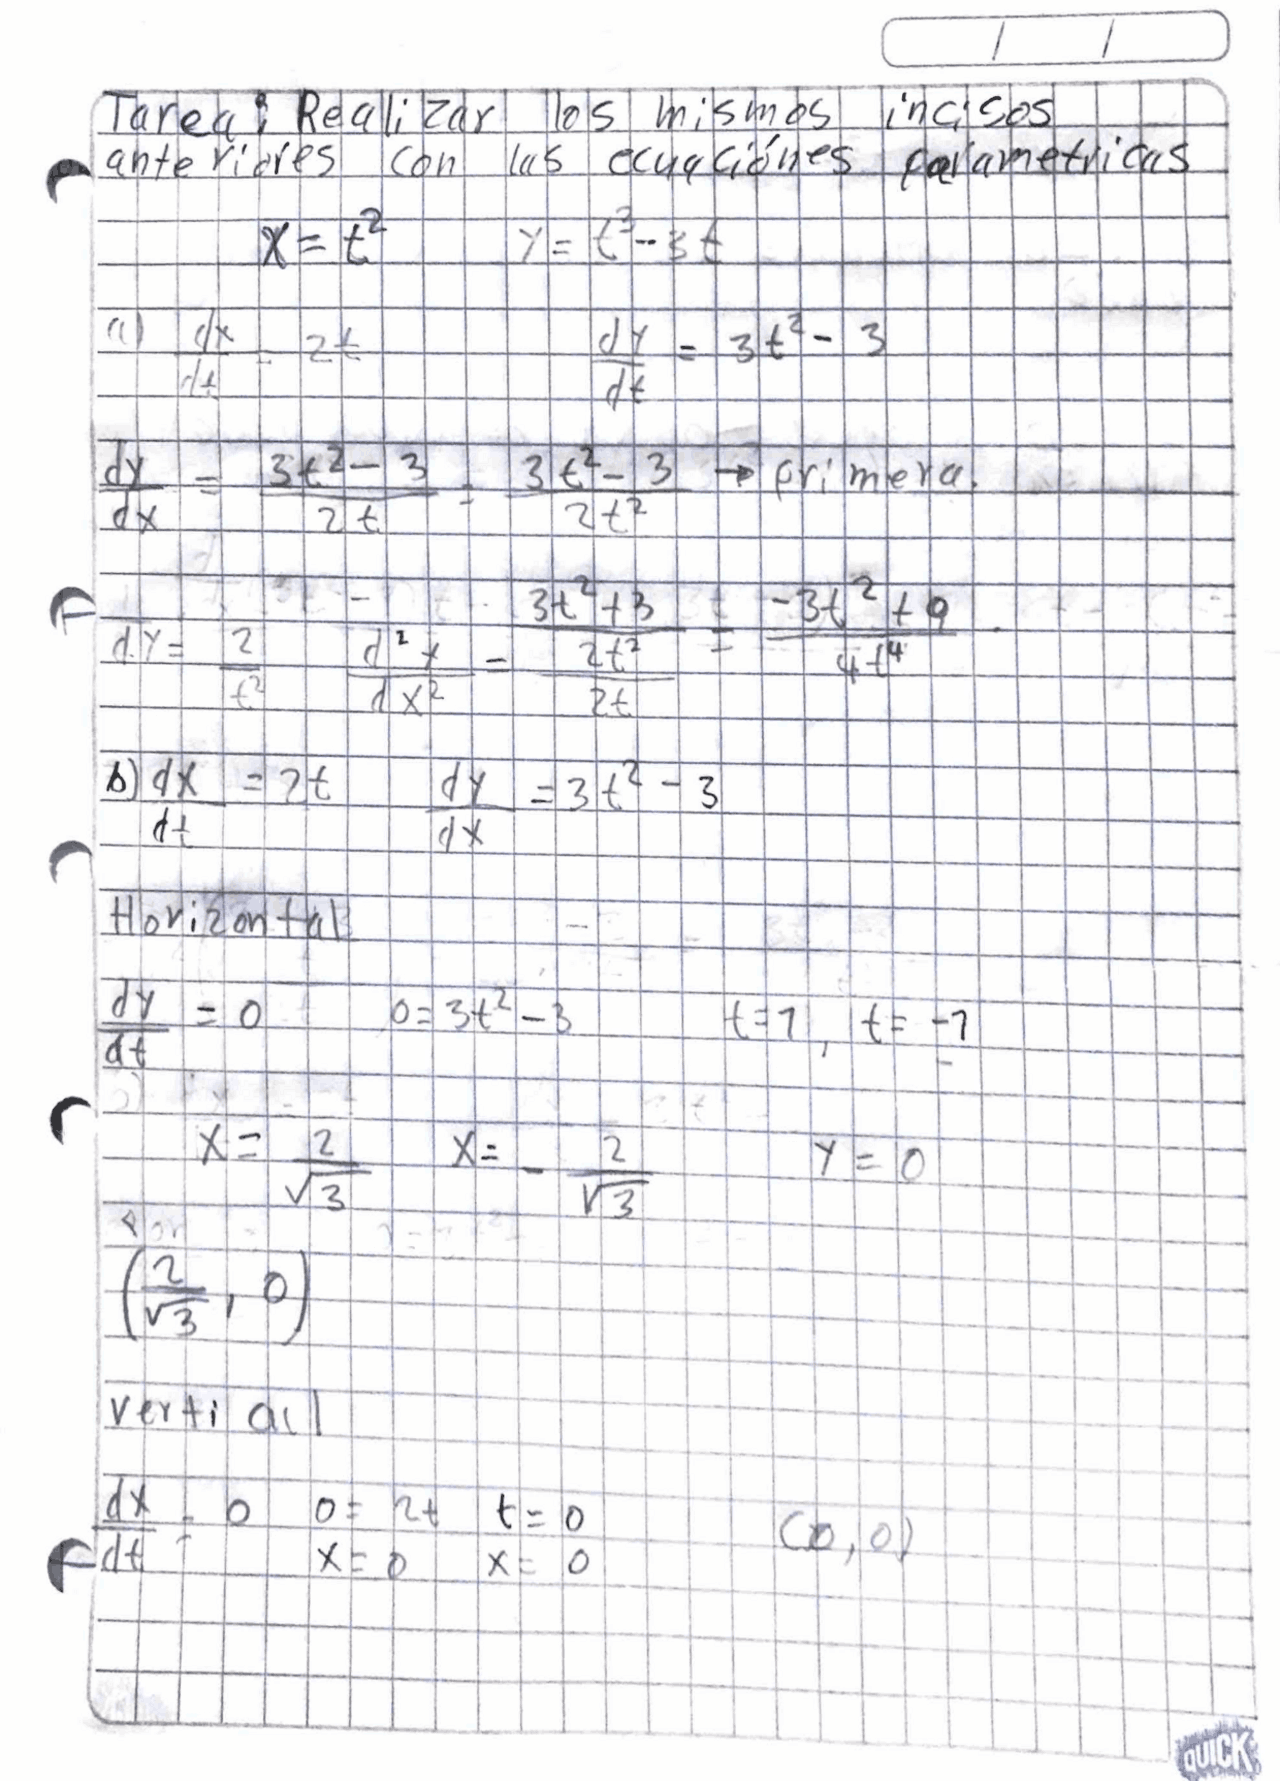 Tarea: Realizar los mismos incisos
anteriores con las ecuaciónes parametricas
x = t² y = t³ - 3t
a) dx/dt = 2t dy/dt = 3t² - 3
dy/dx = (3t² - 3)/(2t) = (3t² - 3)/(2t²) → primera.
dy = 2/t² d²y/dx² = ((3t² + 3)/(2t²))/(2t) = (-3t² + 9)/(4t⁴)
b) dx/dt = 2t dy/dx = 3t² - 3
Horizontal
dy/dt = 0 0 = 3t² - 3 t = 1, t = -1
x = 2/√3 x = - 2/√3 y = 0
(2/√3, 0)
verti acl
dx/dt = 0 0 = 2t t = 0 (0, 0)
x = 0 x = 0
QUICK